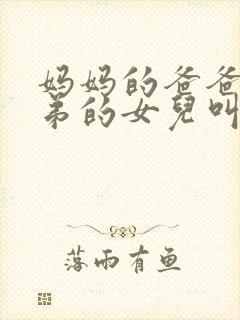 妈妈的爸爸
弟的女儿叫
落雨有鱼